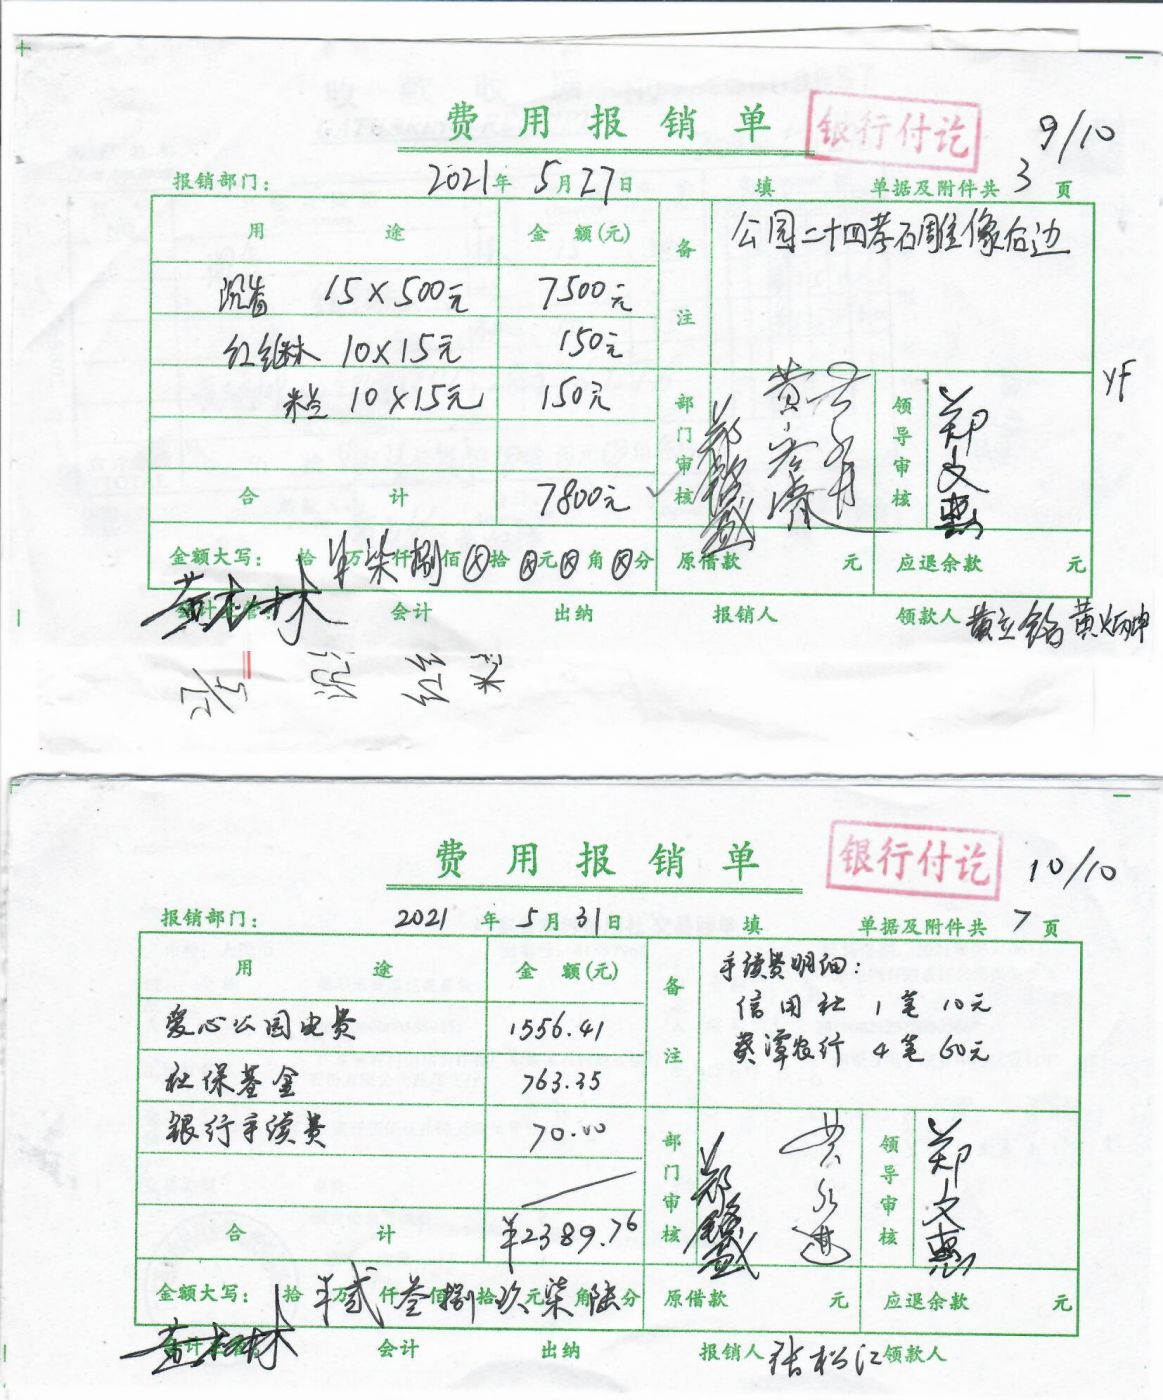 费用报销单
银行付讫
9/10
报销部门： 2021年 5月27日 填 单据及附件共 3 页
用途 金额(元) 备注 公园二十四孝石雕像右边
15×500元 7500元
10×15元 150元
米兰 10×15元 150元
部门审核 领导审核 郑文惠
YF
合计 7800元
金额大写： 拾 ¥万柒仟捌佰⊗拾⊗元⊗角⊗分 原借款 元 应退余款 元
会计 出纳 报销人 领款人
27/5
费用报销单
银行付讫
10/10
报销部门： 2021年 5月31日 填 单据及附件共 7 页
用途 金额(元) 备注 手续费明细：
信用社 1笔 10元
葵潭农行 4笔 60元
爱心公园电费 1556.41
社保基金 763.35
银行手续费 70.00
部门审核 领导审核 郑文惠
合计 ¥2389.76
金额大写： 拾 ¥万贰仟叁佰捌拾玖元柒角陆分 原借款 元 应退余款 元
会计 出纳 报销人 张松江 领款人